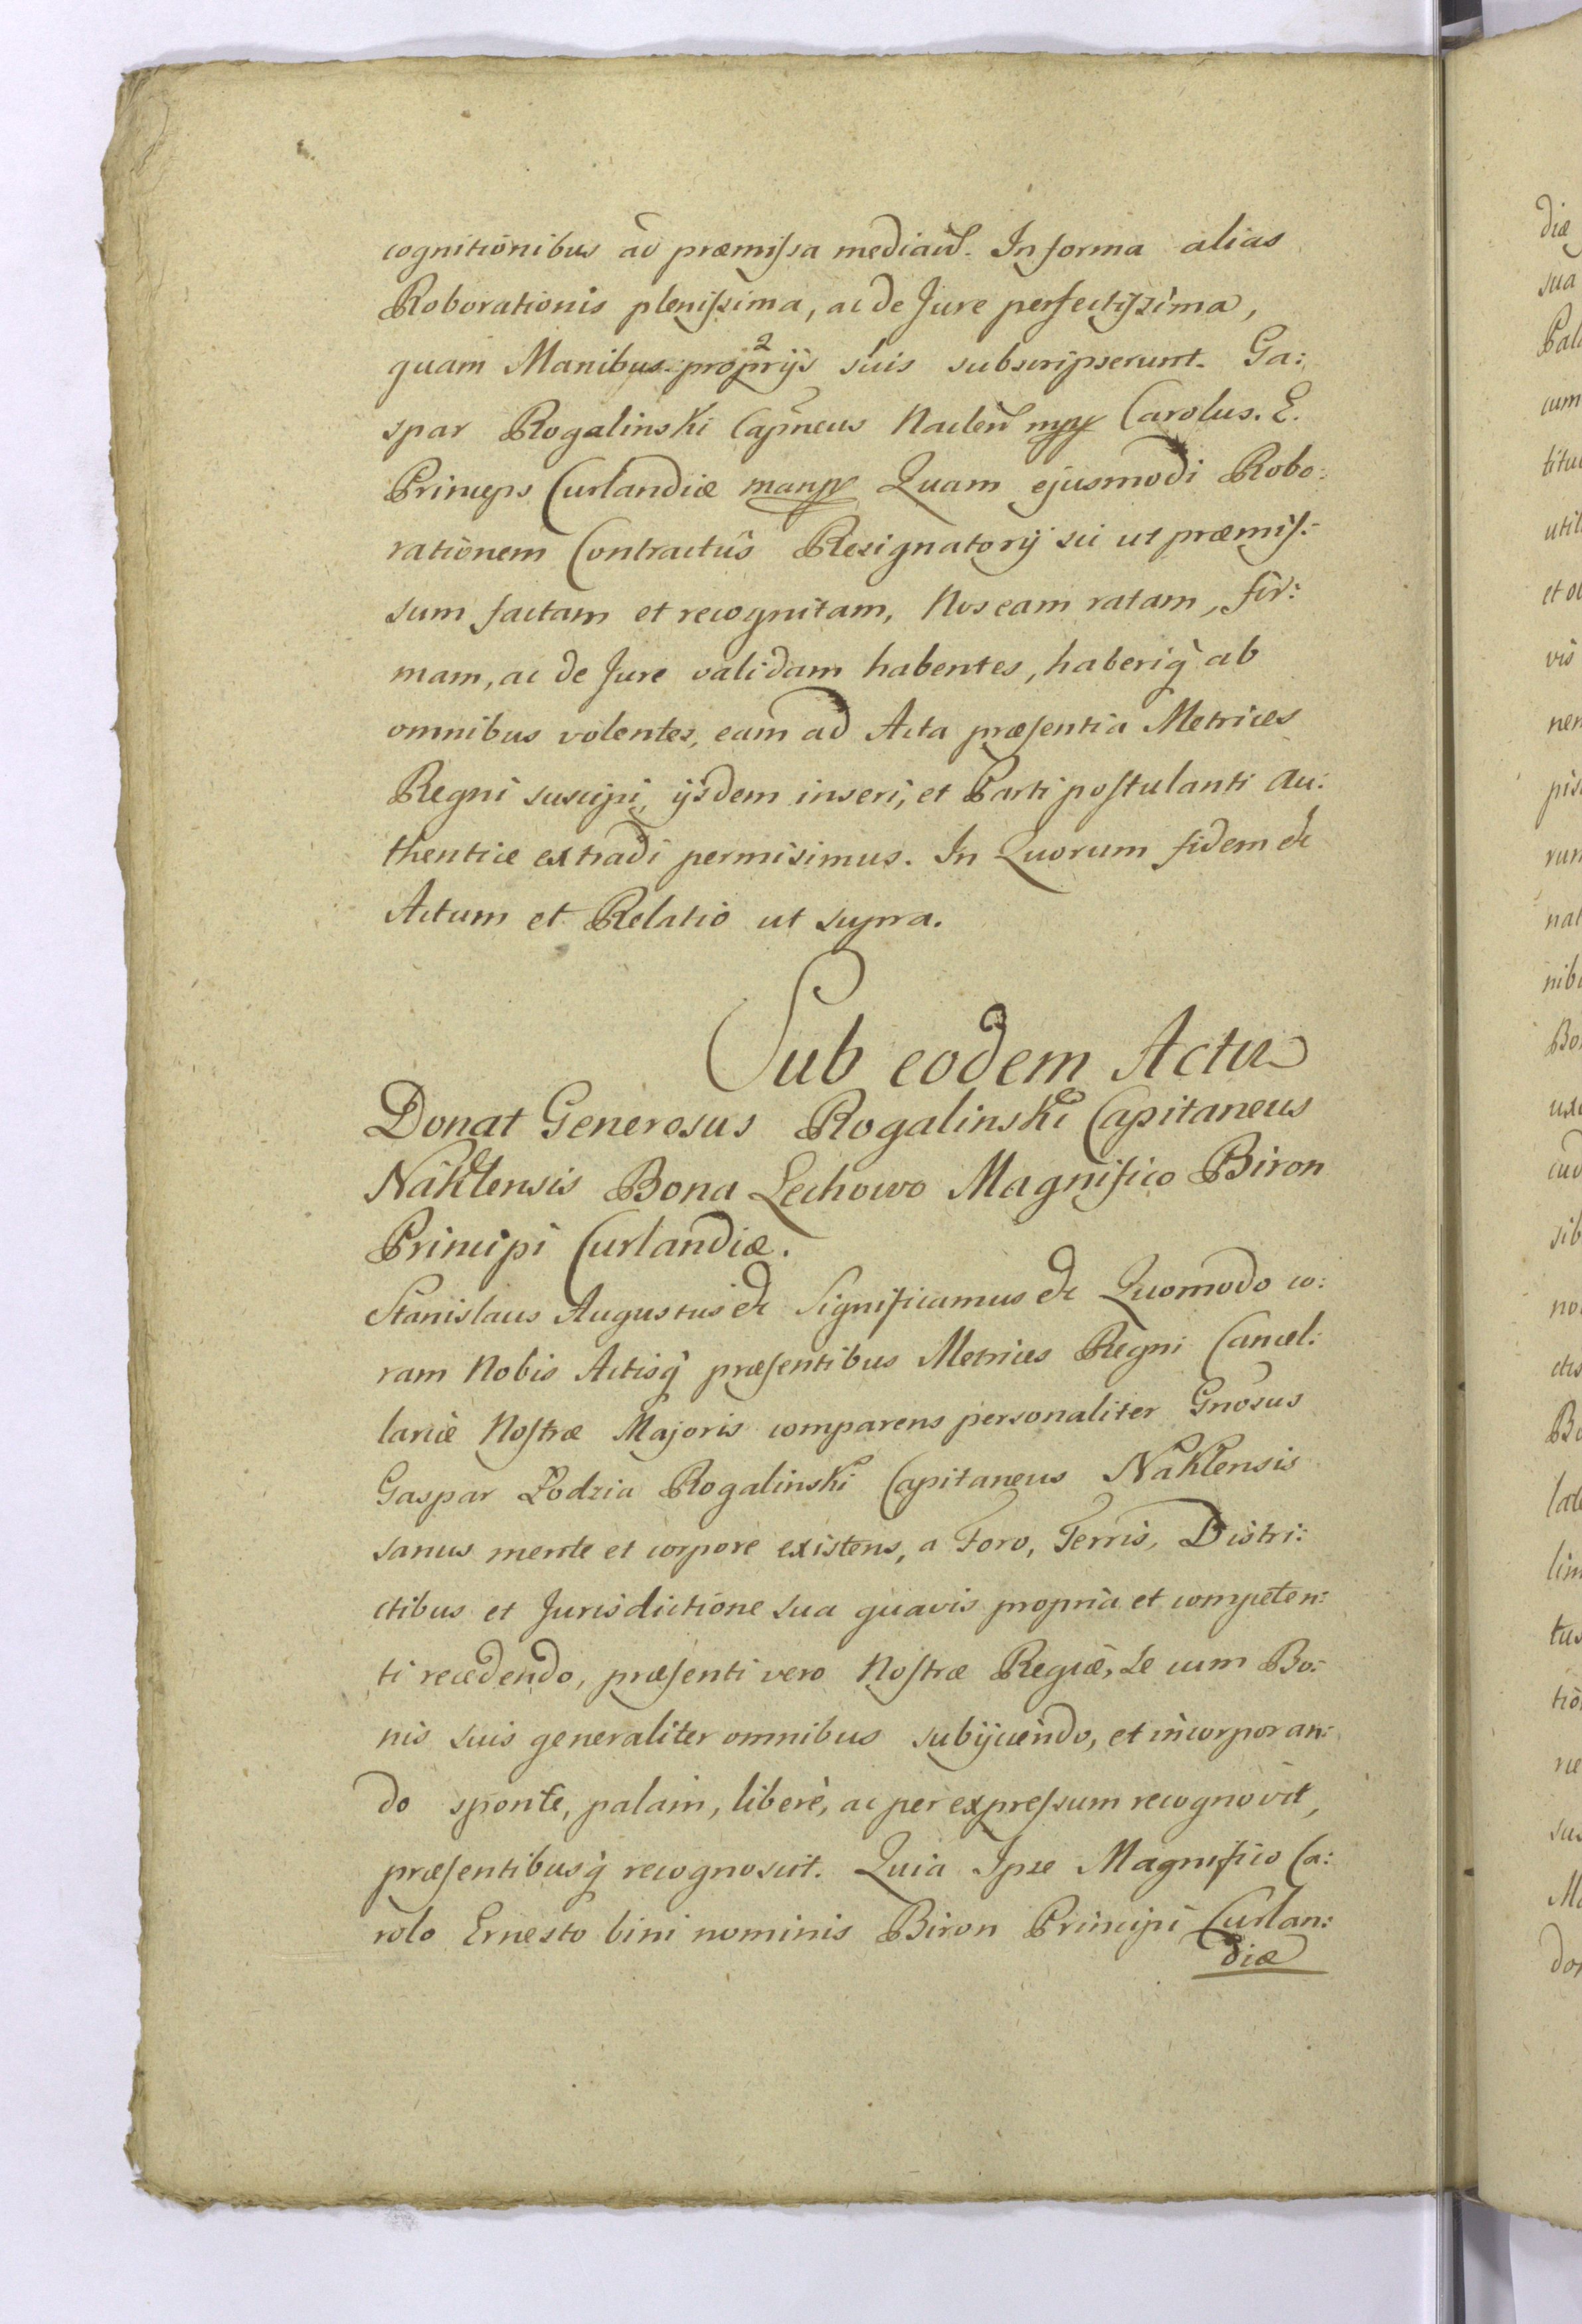 cognitionibus ad præmissa mediañ. In forma alias
Roborationis plenissima, ac de Jure perfectissima,
quam Manibus proprijs suis subscripserunt. Ga:
spar Rogalinski Capñeus Naclen̄ mpp Carolus. E.
Princeps Curlandiæ manpp Quam ejusmodi Robo:
rationem Contractus Resignatorij sic ut præmis:
sum factam et recognitam, Nos eam ratam, fir:
mam, ac de Jure validam habentes, haberiq̀ ab
omnibus volentes, eam ad Acta præsentia Metrices
Regni suscipi, ijsdem inseri, et Parti postulanti au:
thentice extradi permisimus. In Quorum fidem &c
Actum et Relatio ut supra.
Sub eodem Actu
Donat Generosus Rogalinski Capitaneus
Nakłensis Bona Lechowo Magnifico Biron
Principi Curlandiæ.
Stanislaus Augustus &c Significamus &c Quomodo co:
ram Nobis Actisq̀ præsentibus Metrices Regni Cancel:
lariæ Nostræ Majoris comparens personaliter Gnosus
Gaspar Łodzia Rogalinski Capitaneus Nakłensis
sanus mente et corpore existens, a Foro, Terris, Distri:
ctibus et Jurisdictione sua quavis propria et competen:
ti recedendo, præsenti vero Nostræ Regiæ, se cum Bo:
nis suis generaliter omnibus subijciendo, et incorporan:
do sponte, palam, liberè, ac per expressum recognovit,
præsentibusq̀ recognoscit. Quia Ipse Magnifico Ca:
rolo Ernesto bini nominis Biron Principi Curlan:
diæ